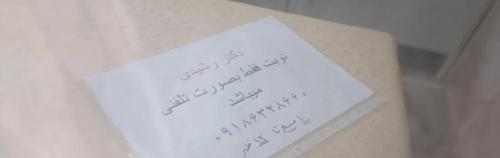 دکتر رشیدی
نوبت فقط بصورت تلفنی
میباشد
۰۹۱۸۶۳۲۸۶۶۰